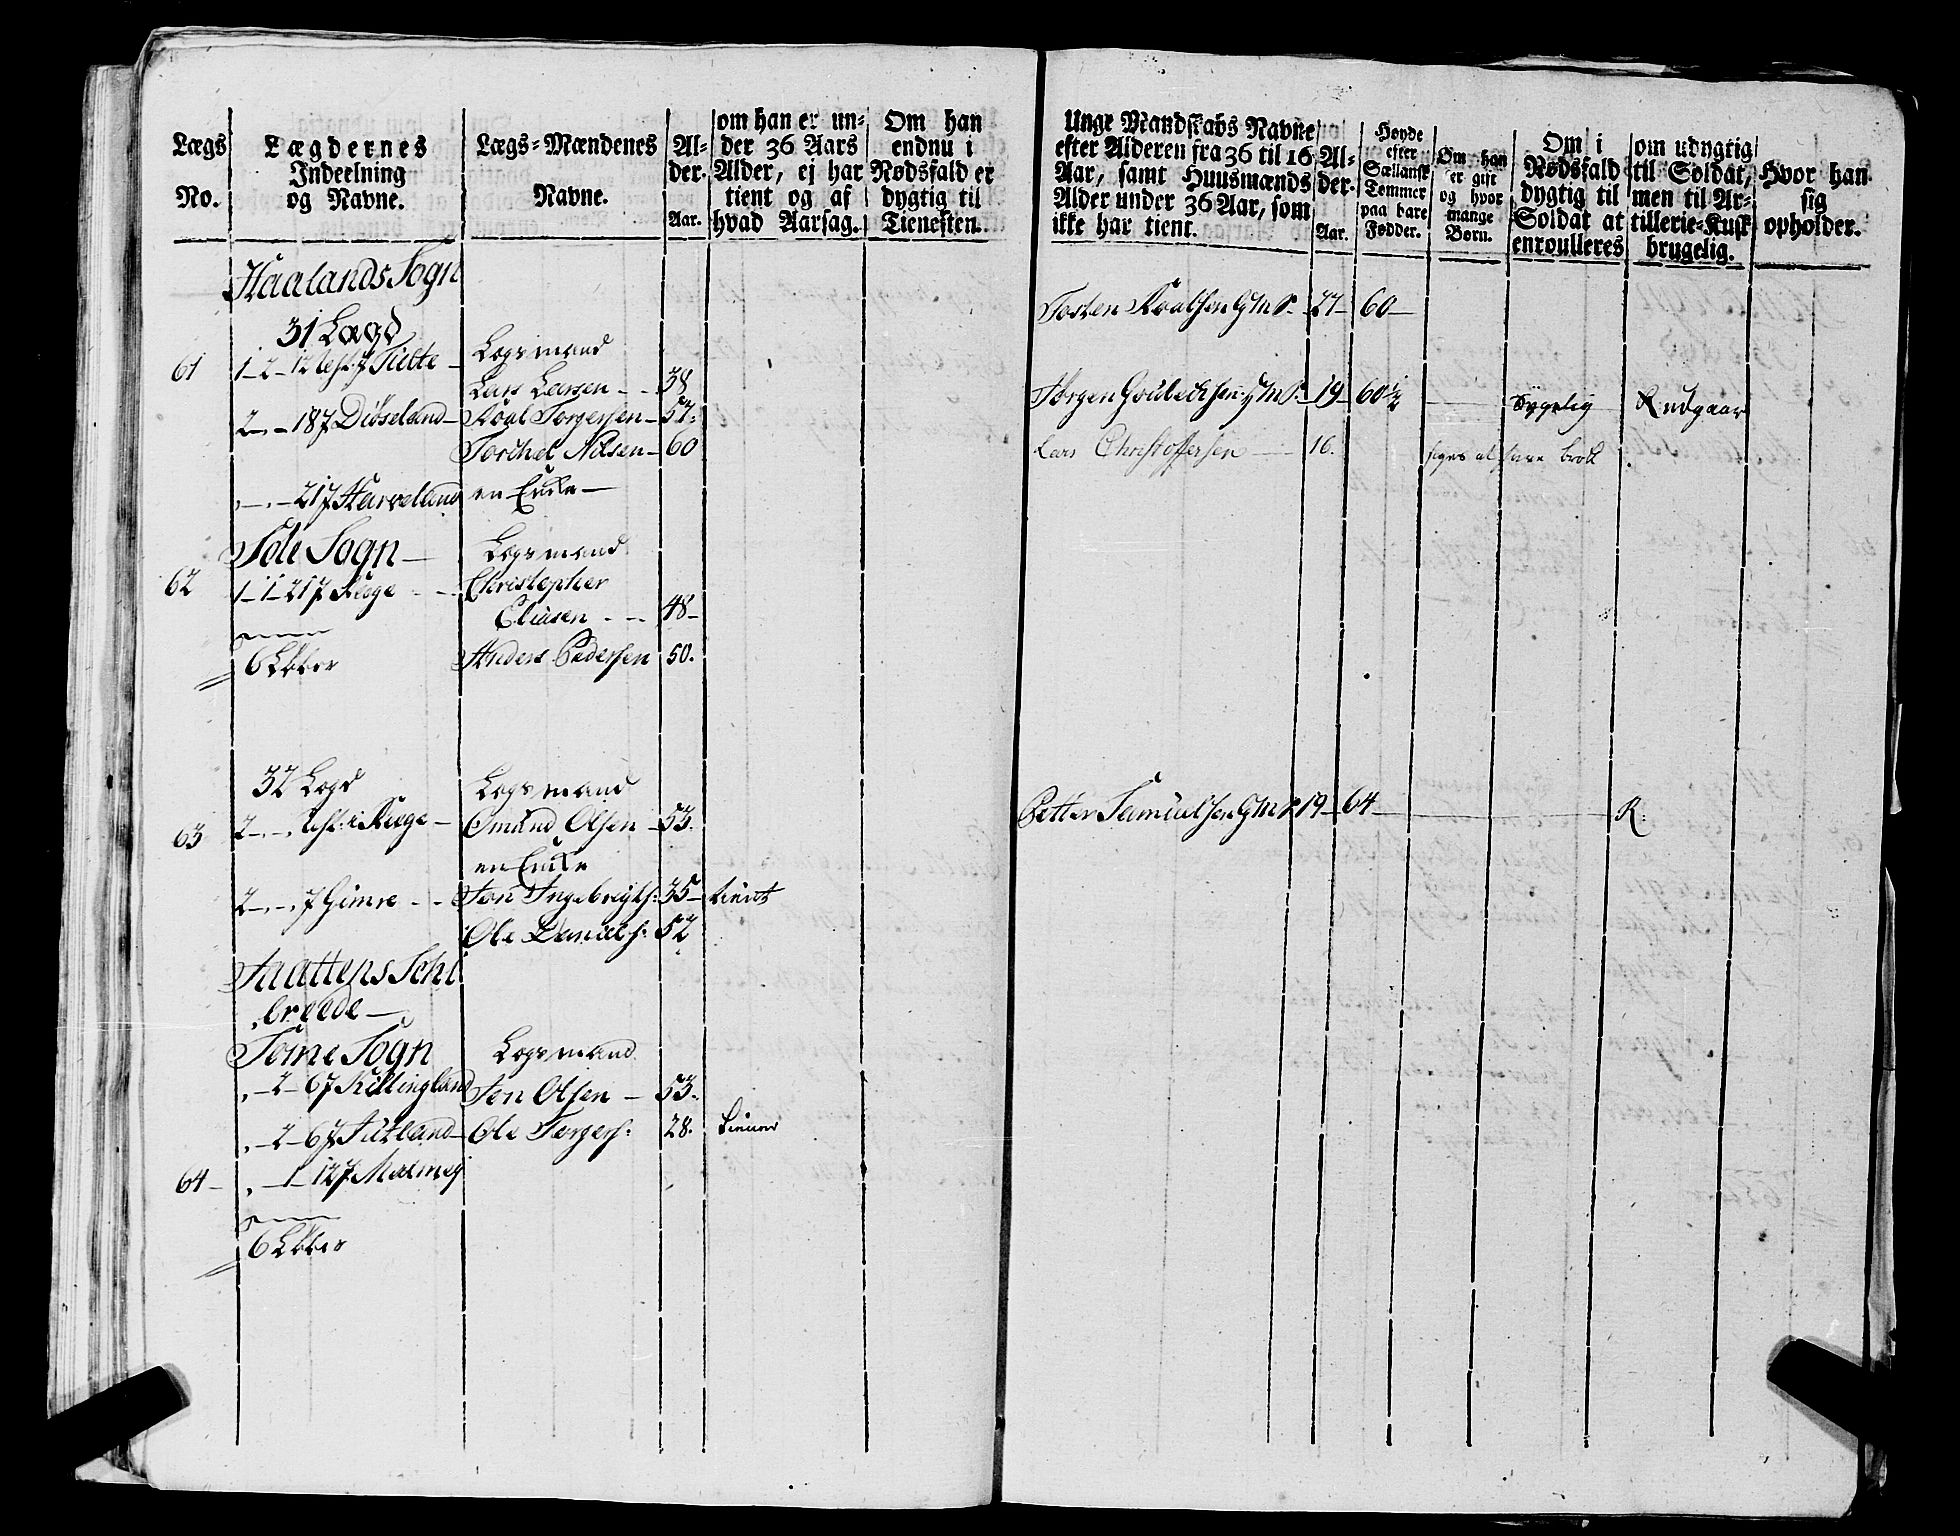 Lægs
No.
Lægdernes
Indeelning
og Navne.
Lægs-Mændenes
Navne.
Al-
der.
Aar.
om han er un-
der 36 Aars
Alder, ej har
tient og af
hvad Aarsag.
Om han
endnu i
Nødsfald er
dygtig til
Tienesten.
Haalands Sogn
31 Lægd
Lægsmand
61 1-2-12
Lars Larsen - - 38
2-.-187 Diøseland - Roal Torgersen - 57.
Torchel Nilsen - 60
,-.-217 Harveland en Enke -
Sole Sogn - Lægsmand
62 1-1-217 Røge - - Christopher
Eliasen - - - 48-
6 Løber Anders Pedersen 50.
32 Lægd Lægsmand
63 2-.-. Røge - Omund Olsen - 53.
en Enke
2-.-.7 Gimre - - Jon Ingebrigts: 35- tient
Ole Daniels: 52
Jaattens Schi
breede -
Some Sogn Lægsmand
,-2-67 Killingland Jon Olsen - 53.
,-2-67 Jutland - Ole Torgers: 28. tiener
64- ,-1-127 Malmey
6 Løber
Unge Mandskabs Navne
efter Alderen fra 36 til 16
Aar, samt Huusmænds
Alder under 36 Aar, som
ikke har tient.
Al-
der.
Aar.
Høyde
efter
Sællansk
Tommer
paa bare
Fødder.
Om han
er gift
og hvor
mange
Børn.
Om i
Nødsfald
dygtig til
Soldat at
enroulleres
om udygtig
til Soldat,
men til Ar-
tillerie-Kusk
brugelig.
Hvor han
sig
opholder.
Tosten Roalsen G M S. - 27- 60-
Torgen M S. - 19- 60 1/2 Sygelig
Lars Christoffersen - 16. siges at have brok
Petter Samuelsen G M S 19- 64- R.